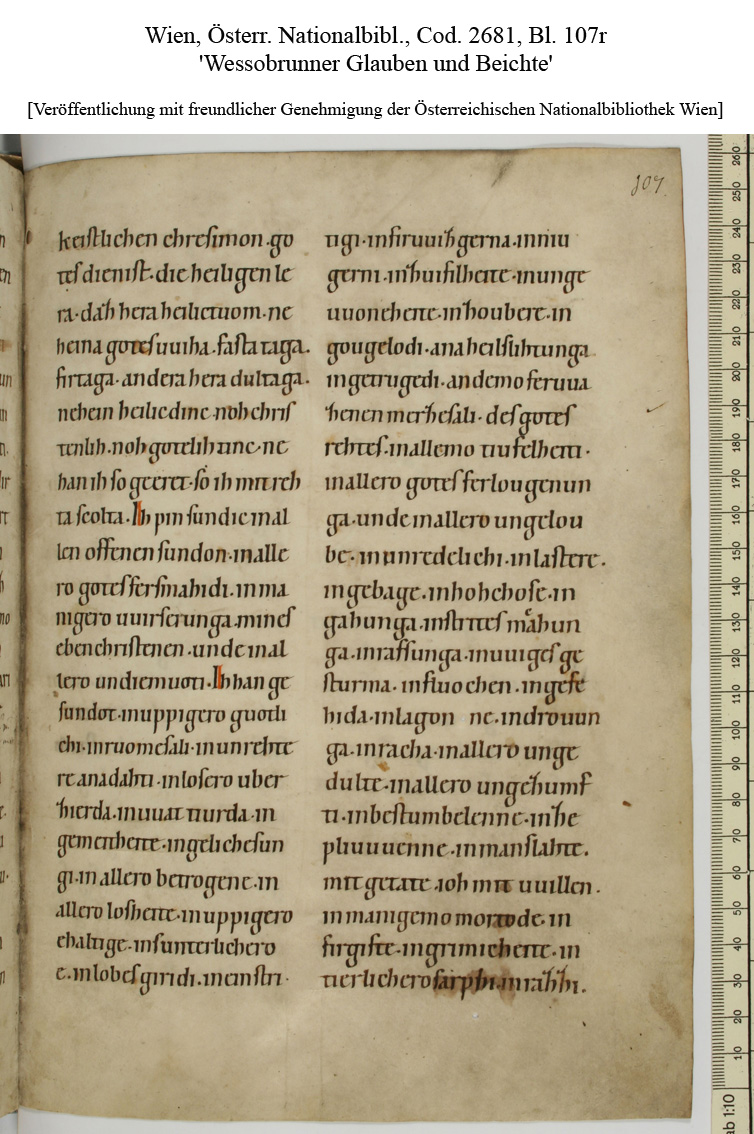 Wien, Österr. Nationalbibl., Cod. 2681, Bl. 107r
'Wessobrunner Glauben und Beichte'
[Veröffentlichung mit freundlicher Genehmigung der Österreichischen Nationalbibliothek Wien]
107
keiſtlichen chreſimon. go
teſ dieniſt. die heiligen le
ra. dah hera heilictuom. ne
heina goteſ uuiha. faſta taga.
firtaga. andera hera dultaga.
nehein heilic dinc. noh chriſ
tenlih. noh gotelih tinc. ne
han ih ſo geeret. ſo ih mit reh
ta ſcolta. Ih pin ſundic in al
len offenen ſundon. in alle
ro goteſ ferſmahidi. in ma
nigero uuirſerunga mineſ
ebenchriſtenen. unde in al
lero undiemuoti. Ih han ge
ſundot. in uppigero guotli
chi. in ruomeſali. in unrehte
re anadahti. in loſero uber
hierda. in uuattiurda. in
gemeitheite. in gelicheſun
gi. in allero betrogene. in
allero loſheite. in uppigero
ehaltige. in ſunterlichero
e. in lobeſ giridi. in einſtri
tigi. in firuuihgerna. in niu
gerni. in huifilheite. in unge
uuoneheite. in houbete. in
gougelodi. ana heilſuhtunga
in getrugedi. an demo feruua
henen merheſali. deſ goteſ
rehteſ. in allemo tiufelheiti.
in allero goteſ ferlougenun
ga. unde in allero ungelou
be. in unredelichi. in laſtere.
in gebage. in hohchoſe. in
gahunga. in ſtriteſ mahun
ga. in raffunga. in uuigeſ ge
ſturma. in fluochen. in gefe
hida. in lagon ne. in drouun
ga. in racha. in allero unge
dulte. in allero ungehumf
ti. in beſtumbelenne. in he
pliuuuenne. in manſlahte.
mit getate ioh mit uuillen.
in manigemo mortode. in
firgifte. in grimicheite. in
tierlichero ſarphi. in rahhi.